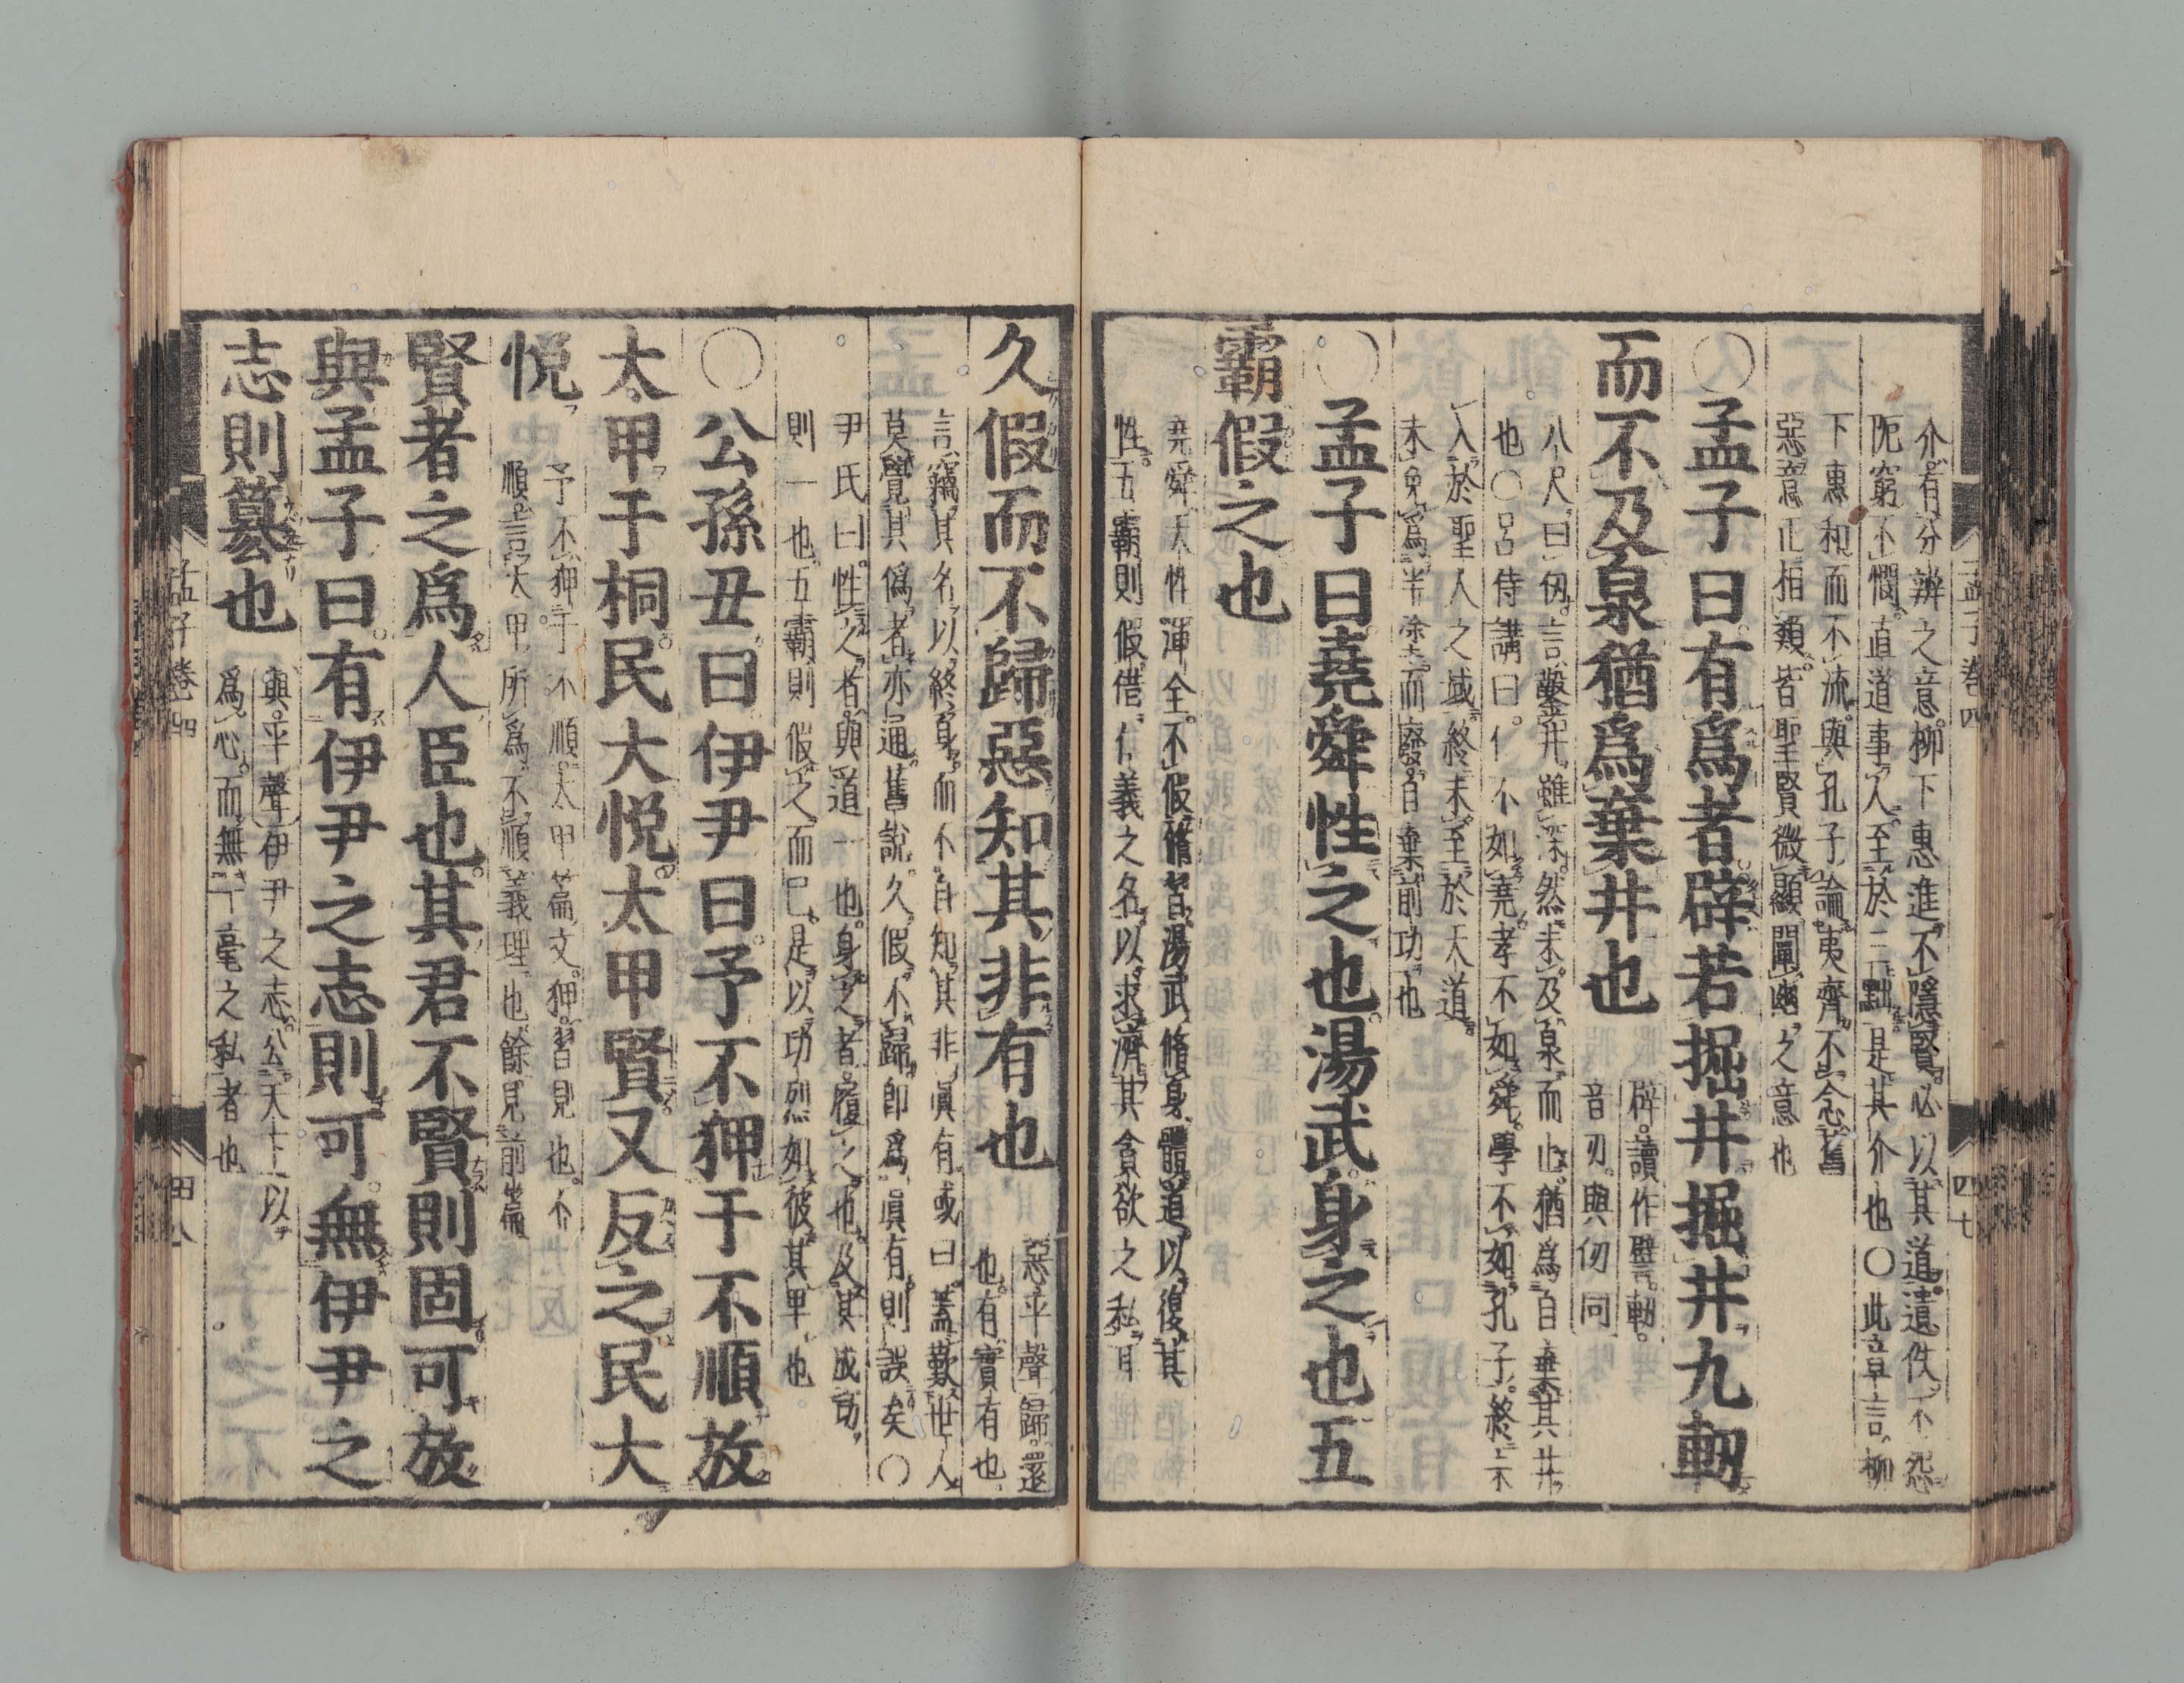 介有分辨之意柳下惠進不隱賢必以其道遺佚不怨
阨窮不憫直道事人至於三黜是其介也〇此章言柳
下惠和而不流與孔子論夷齊不念舊
惡意正相類皆聖賢微顯闡幽之意也
〇孟子曰有爲者辟若掘井掘井九軔
而不及泉猶爲棄井也
辟讀作譬軔
音刃與仞同
八尺曰仞言鑿井雖深然未及泉而止猶爲自棄其井
也〇呂侍講曰仁不如堯孝不如舜學不如孔子終未
入於聖人之域終未至於天道
未免爲半塗而廢自棄前功也
〇孟子曰堯舜性之也湯武身之也五
霸假之也
堯舜天性渾全不假脩習湯武脩身體道以復其
性五霸則假借仁義之名以求濟其貪欲之私耳
孟子卷四
四七
久假而不歸惡知其非有也
惡平聲歸還
也有實有也
言竊其名以終身而不自知其非眞有或曰蓋歎世人
莫覺其僞者亦通舊說久假不歸卽爲眞有則誤矣〇
尹氏曰性之者與道一也身之者履之也及其成功
則一也五霸則假之而已是以功烈如彼其卑也
〇公孫丑曰伊尹曰予不狎于不順放
太甲于桐民大悅太甲賢又反之民大
悅
予不狎于不順太甲篇文狎習見也不
順言太甲所爲不順義理也餘見前篇
賢者之爲人臣也其君不賢則固可放
與孟子曰有伊尹之志則可無伊尹之
志則簒也
與平聲伊尹之志公天下以
爲心而無一毫之私者也
孟子卷四
四八